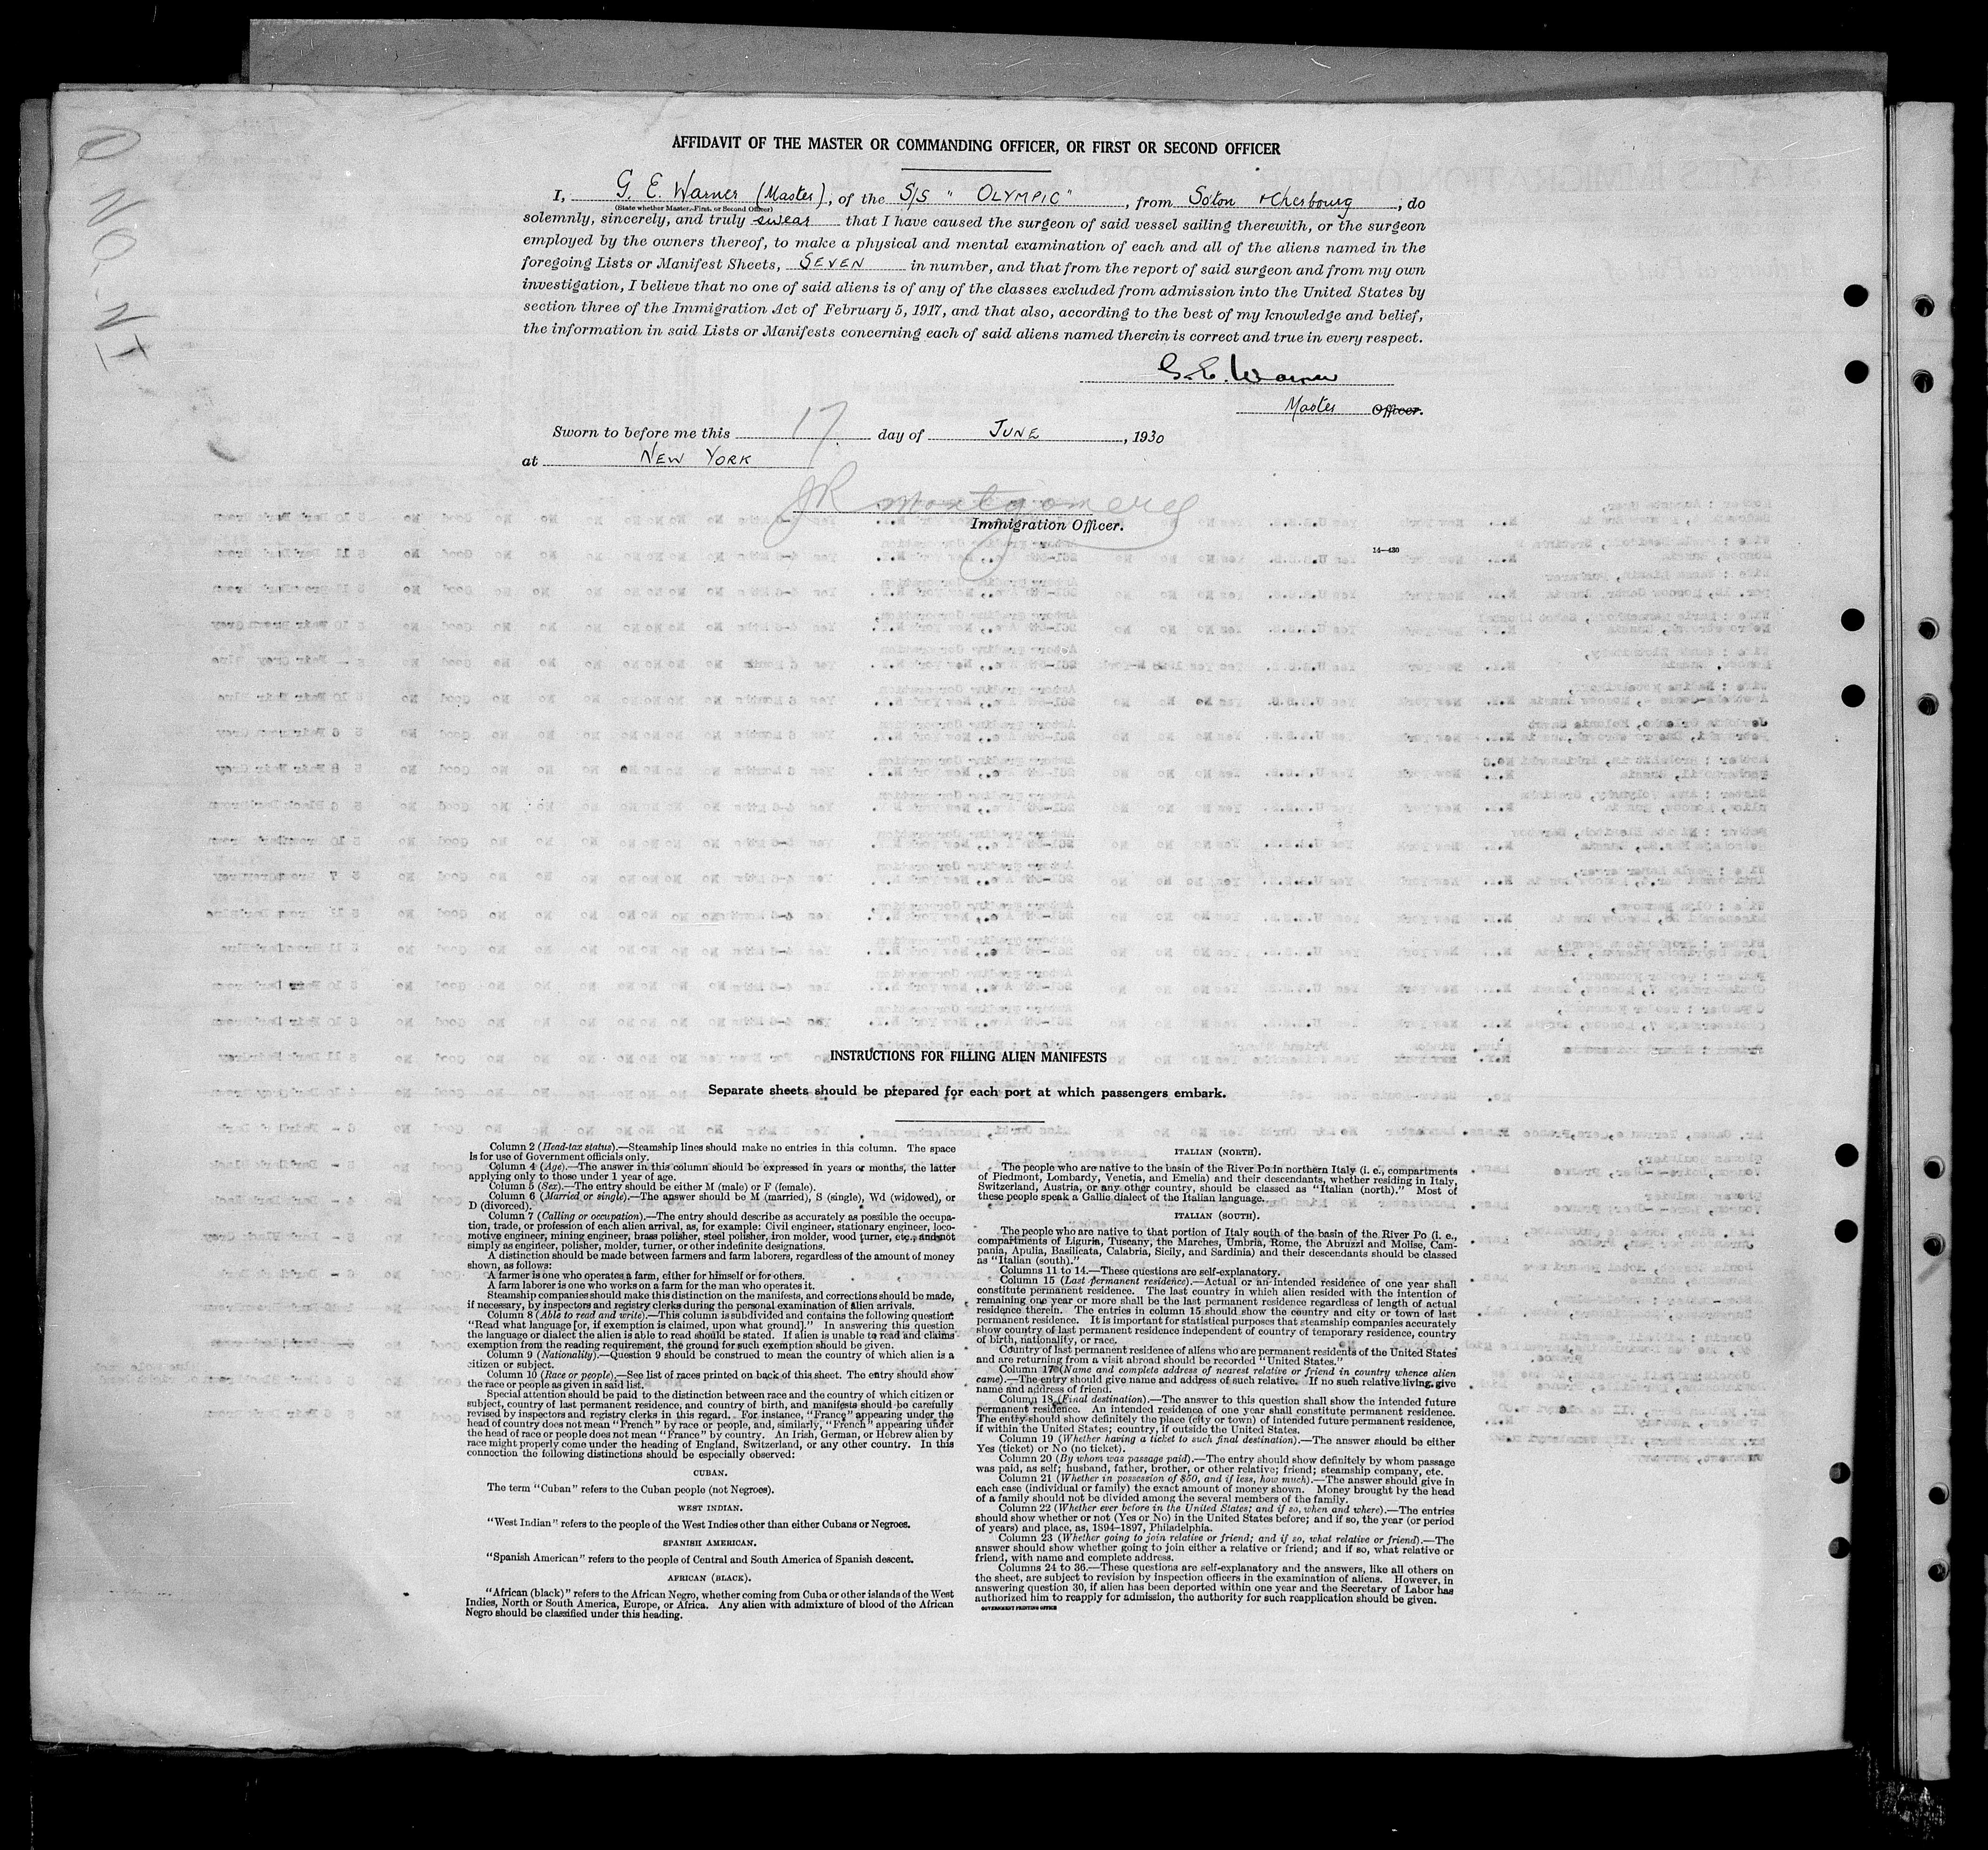 AFFIDAVIT OF THE MASTER OR COMMANDING OFFICER, OR FIRST OR SECOND OFFICER
I, G. E. Warner (Master), of the S/S " OLYMPIC ", from Soton & Cherbourg, do
(State whether Master, First, or Second Officer)
solemnly, sincerely, and truly swear that I have caused the surgeon of said vessel sailing therewith, or the surgeon
employed by the owners thereof, to make a physical and mental examination of each and all of the aliens named in the
foregoing Lists or Manifest Sheets, SEVEN in number, and that from the report of said surgeon and from my own
investigation, I believe that no one of said aliens is of any of the classes excluded from admission into the United States by
section three of the Immigration Act of February 5, 1917, and that also, according to the best of my knowledge and belief,
the information in said Lists or Manifests concerning each of said aliens named therein is correct and true in every respect.
G. E. Warner
Master Officer.
Sworn to before me this 17 day of JUNE, 1930
at NEW YORK
JR Montgomery
Immigration Officer.
14—430
INSTRUCTIONS FOR FILLING ALIEN MANIFESTS
Separate sheets should be prepared for each port at which passengers embark.
Column 2 (Head-tax status).—Steamship lines should make no entries in this column. The space
is for use of Government officials only.
Column 4 (Age).—The answer in this column should be expressed in years or months, the latter
applying only to those under 1 year of age.
Column 5 (Sex).—The entry should be either M (male) or F (female).
Column 6 (Married or single).—The answer should be M (married), S (single), Wd (widowed), or
D (divorced).
Column 7 (Calling or occupation).—The entry should describe as accurately as possible the occupa-
tion, trade, or profession of each alien arrival, as, for example: Civil engineer, stationary engineer, loco-
motive engineer, mining engineer, brass polisher, steel polisher, iron molder, wood turner, etc., and not
simply as engineer, polisher, molder, turner, or other indefinite designations.
A distinction should be made between farmers and farm laborers, regardless of the amount of money
shown, as follows:
A farmer is one who operates a farm, either for himself or for others.
A farm laborer is one who works on a farm for the man who operates it.
Steamship companies should make this distinction on the manifests, and corrections should be made,
if necessary, by inspectors and registry clerks during the personal examination of alien arrivals.
Column 8 (Able to read and write).—This column is subdivided and contains the following question:
"Read what language [or, if exemption is claimed, upon what ground]." In answering this question
the language or dialect the alien is able to read should be stated. If alien is unable to read and claims
exemption from the reading requirement, the ground for such exemption should be given.
Column 9 (Nationality).—Question 9 should be construed to mean the country of which alien is a
citizen or subject.
Column 10 (Race or people).—See list of races printed on back of this sheet. The entry should show
the race or people as given in said list.
Special attention should be paid to the distinction between race and the country of which citizen or
subject, country of last permanent residence, and country of birth, and manifests should be carefully
revised by inspectors and registry clerks in this regard. For instance, "France" appearing under the
head of country does not mean "French" by race or people, and, similarly, "French" appearing under
the head of race or people does not mean "France" by country. An Irish, German, or Hebrew alien by
race might properly come under the heading of England, Switzerland, or any other country. In this
connection the following distinctions should be especially observed:
CUBAN.
The term "Cuban" refers to the Cuban people (not Negroes).
WEST INDIAN.
"West Indian" refers to the people of the West Indies other than either Cubans or Negroes.
SPANISH AMERICAN.
"Spanish American" refers to the people of Central and South America of Spanish descent.
AFRICAN (BLACK).
"African (black)" refers to the African Negro, whether coming from Cuba or other islands of the West
Indies, North or South America, Europe, or Africa. Any alien with admixture of blood of the African
Negro should be classified under this heading.
ITALIAN (NORTH).
The people who are native to the basin of the River Po in northern Italy (i. e., compartments
of Piedmont, Lombardy, Venetia, and Emelia) and their descendants, whether residing in Italy,
Switzerland, Austria, or any other country, should be classed as "Italian (north)." Most of
these people speak a Gallic dialect of the Italian language.
ITALIAN (SOUTH).
The people who are native to that portion of Italy south of the basin of the River Po (i. e.,
compartments of Liguria, Tuscany, the Marches, Umbria, Rome, the Abruzzi and Molise, Cam-
pania, Apulia, Basilicata, Calabria, Sicily, and Sardinia) and their descendants should be classed
as "Italian (south)."
Columns 11 to 14.—These questions are self-explanatory.
Column 15 (Last permanent residence).—Actual or an intended residence of one year shall
constitute permanent residence. The last country in which alien resided with the intention of
remaining one year or more shall be the last permanent residence regardless of length of actual
residence therein. The entries in column 15 should show the country and city or town of last
permanent residence. It is important for statistical purposes that steamship companies accurately
show country of last permanent residence independent of country of temporary residence, country
of birth, nationality, or race.
Country of last permanent residence of aliens who are permanent residents of the United States
and are returning from a visit abroad should be recorded "United States."
Column 17 (Name and complete address of nearest relative or friend in country whence alien
came).—The entry should give name and address of such relative. If no such relative living, give
name and address of friend.
Column 18 (Final destination).—The answer to this question shall show the intended future
permanent residence. An intended residence of one year shall constitute permanent residence.
The entry should show definitely the place (city or town) of intended future permanent residence,
if within the United States; country, if outside the United States.
Column 19 (Whether having a ticket to such final destination).—The answer should be either
Yes (ticket) or No (no ticket).
Column 20 (By whom was passage paid).—The entry should show definitely by whom passage
was paid, as self; husband, father, brother, or other relative; friend; steamship company, etc.
Column 21 (Whether in possession of $50, and if less, how much).—The answer should give in
each case (individual or family) the exact amount of money shown. Money brought by the head
of a family should not be divided among the several members of the family.
Column 22 (Whether ever before in the United States; and if so, when and where).—The entries
should show whether or not (Yes or No) in the United States before; and if so, the year (or period
of years) and place, as, 1894-1897, Philadelphia.
Column 23 (Whether going to join relative or friend; and if so, what relative or friend).—The
answer should show whether going to join either a relative or friend; and if so, what relative or
friend, with name and complete address.
Columns 24 to 36.—These questions are self-explanatory and the answers, like all others on
the sheet, are subject to revision by inspection officers in the examination of aliens. However, in
answering question 30, if alien has been deported within one year and the Secretary of Labor has
authorized him to reapply for admission, the authority for such reapplication should be given.
GOVERNMENT PRINTING OFFICE